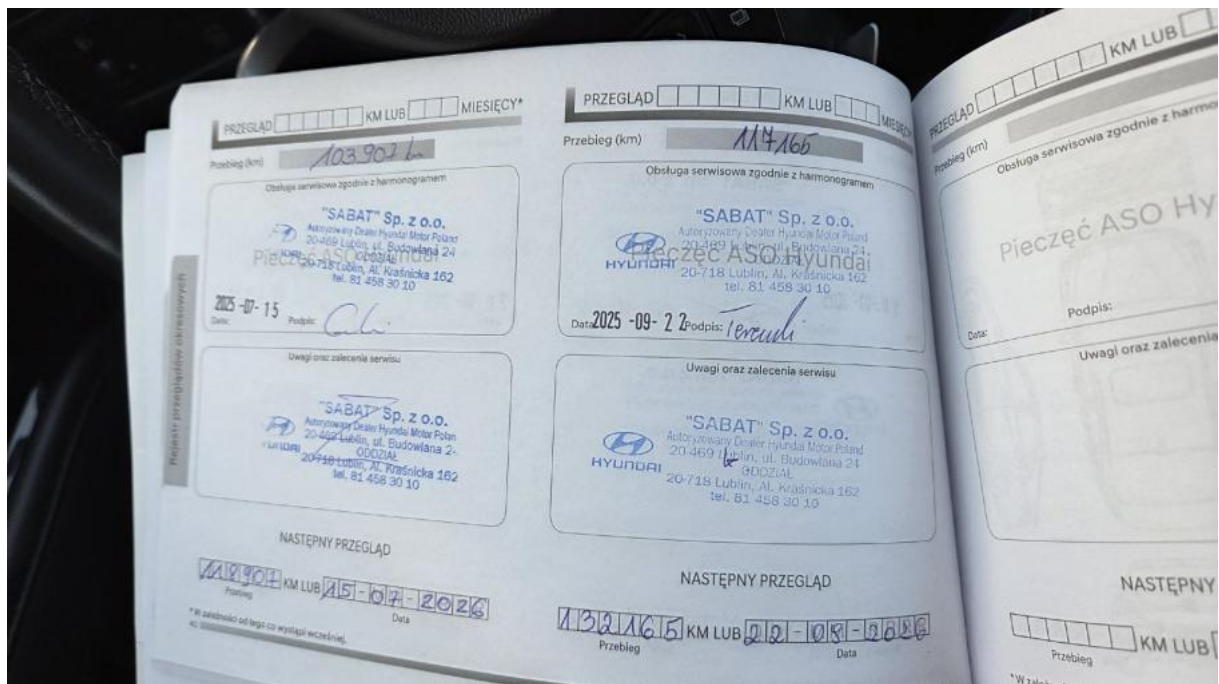 PRZEGLĄD KM LUB MIESIĘCY*
Przebieg (km) 103.907 km
Obsługa serwisowa zgodnie z harmonogramem
"SABAT" Sp. z o.o.
Autoryzowany Dealer Hyundai Motor Poland
20-469 Lublin, ul. Budowlana 24
ODDZIAŁ
Pieczęć ASO Hyundai
20-718 Lublin, Al. Kraśnicka 162
tel. 81 458 30 10
2025 -07- 15
Data: Podpis:
Uwagi oraz zalecenia serwisu
"SABAT" Sp. z o.o.
Autoryzowany Dealer Hyundai Motor Polan
HYUNDAI
20-469 Lublin, ul. Budowlana 2
ODDZIAŁ
20-718 Lublin, Al. Kraśnicka 162
tel. 81 458 30 10
NASTĘPNY PRZEGLĄD
118907 KM LUB 15-07-2026
Przebieg Data
*W zależności od tego co wystąpi wcześniej.
40
Rejestr przeglądów okresowych
PRZEGLĄD KM LUB MIESIĘCY
Przebieg (km) 117165
Obsługa serwisowa zgodnie z harmonogramem
"SABAT" Sp. z o.o.
Autoryzowany Dealer Hyundai Motor Poland
20-469 Lublin, ul. Budowlana 24
ODDZIAŁ
Pieczęć ASO Hyundai
HYUNDAI
20-718 Lublin, Al. Kraśnicka 162
tel. 81 458 30 10
Data 2025 -09- 2 2 Podpis:
Uwagi oraz zalecenia serwisu
"SABAT" Sp. z o.o.
Autoryzowany Dealer Hyundai Motor Poland
20-469 Lublin, ul. Budowlana 24
HYUNDAI
ODDZIAŁ
20-718 Lublin, Al. Kraśnicka 162
tel. 81 458 30 10
NASTĘPNY PRZEGLĄD
132165 KM LUB 22-08-2026
Przebieg Data
PRZEGLĄD KM LUB
Przebieg (km)
Obsługa serwisowa zgodnie z harmo
Pieczęć ASO Hy
Data: Podpis:
Uwagi oraz zalecenia
NASTĘPNY
KM LUB
Przebieg